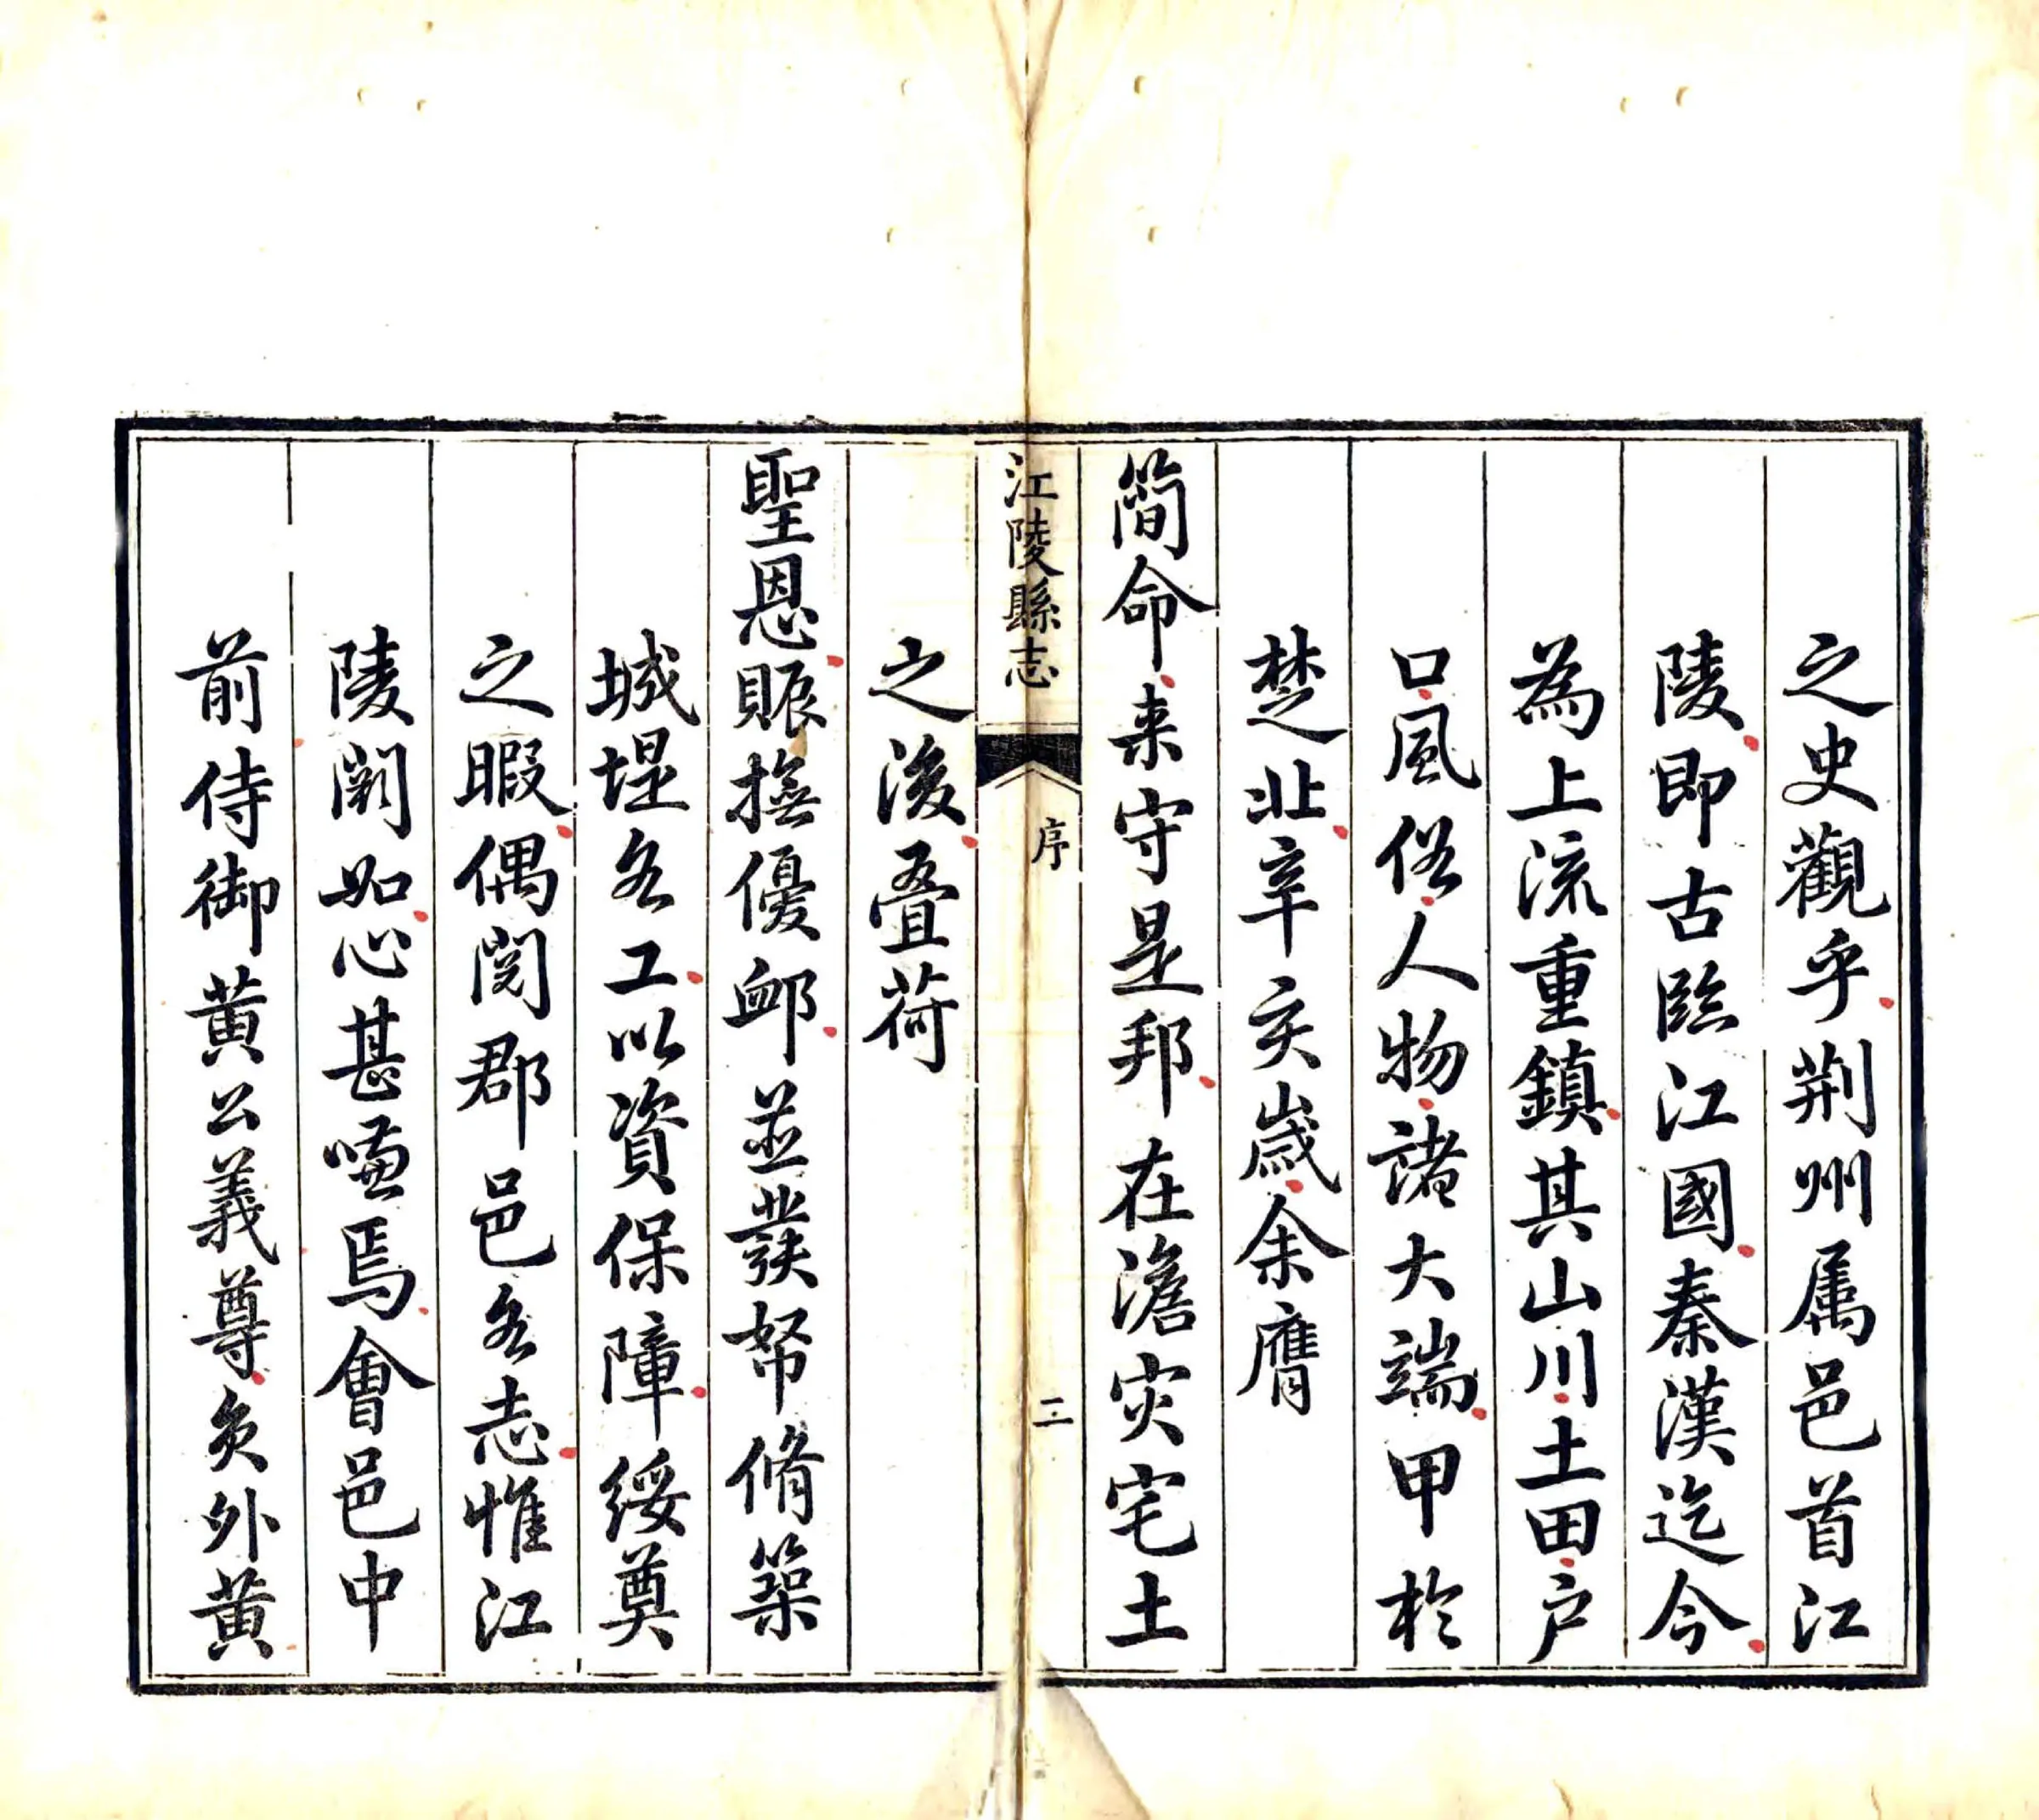 之史觀乎荆州属邑首江
陵即古臨江國秦漢迄今
為上流重鎮其山川土田户
口風俗人物諸大端甲於
楚北辛亥歲余膺
簡命来守是邦在澹灾宅土
江陵縣志
序
二
之後叠荷
聖恩賑撫優卹並發帑脩築
城堤各工以資保障綏奠
之暇偶閱郡邑各志惟江
陵闕如心甚嗛焉會邑中
前侍御黄公義尊員外黄